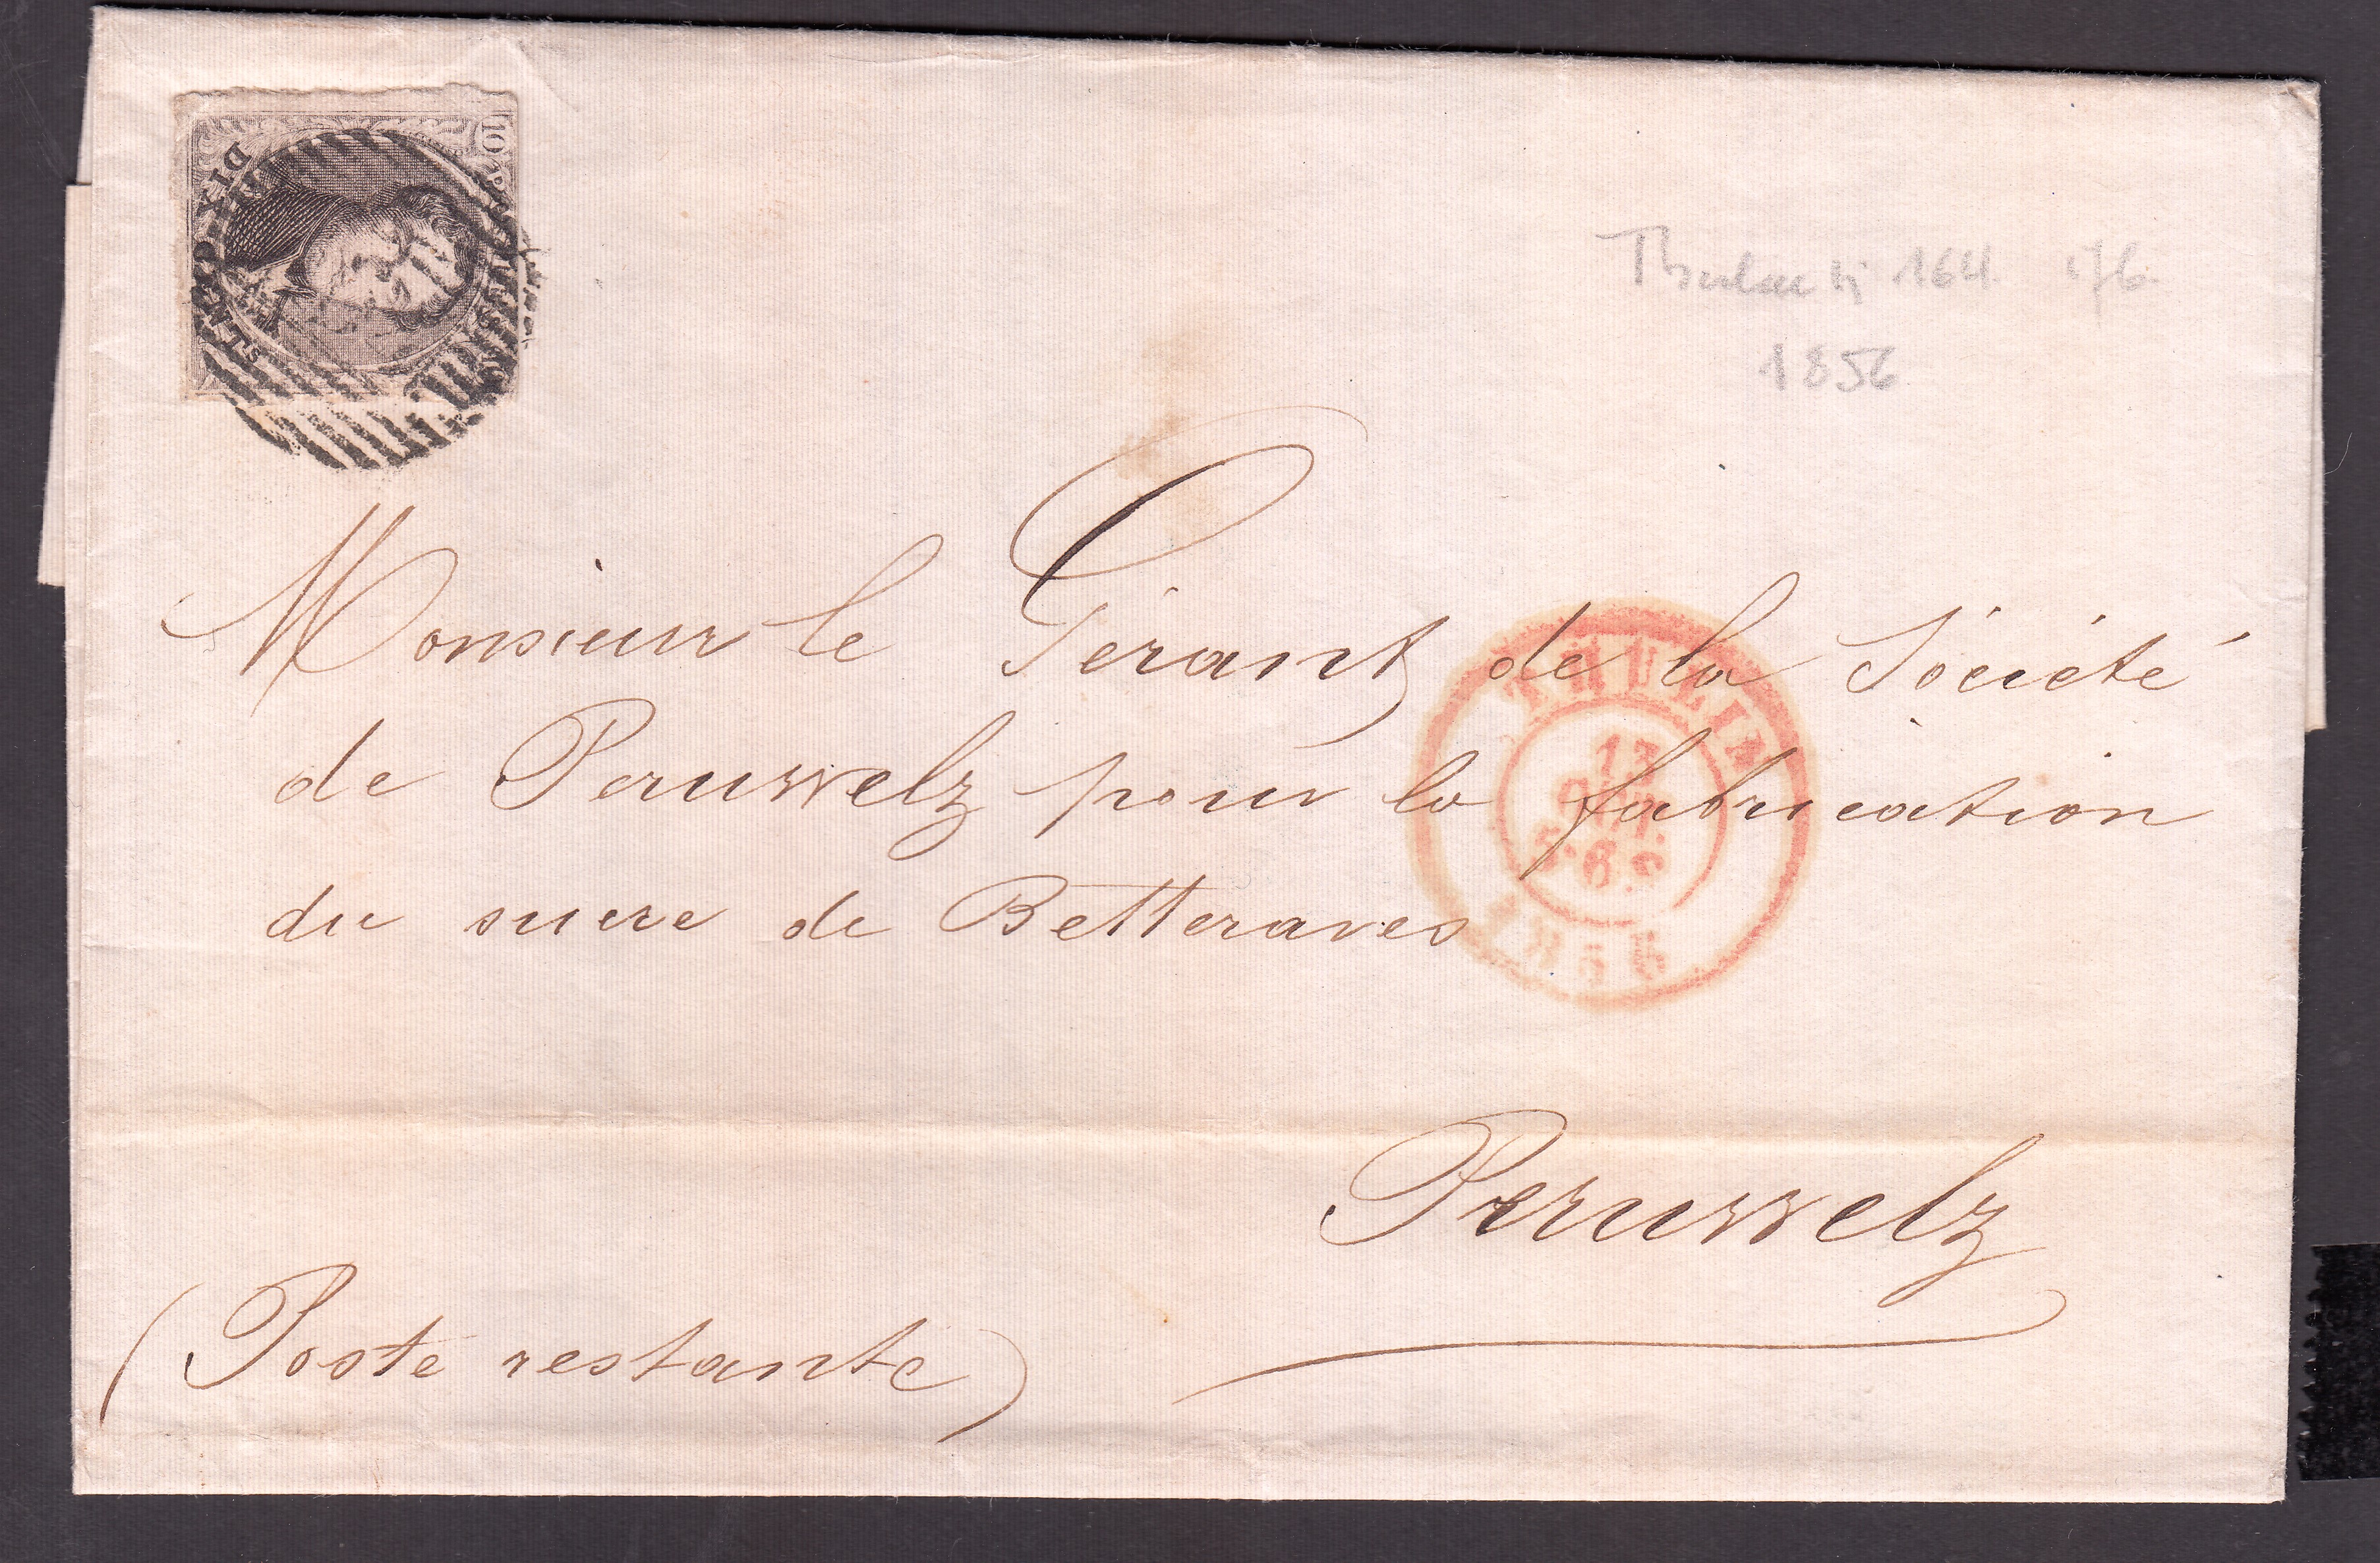 10
DIX CENTS
164
1856
Monsieur le Gérant de la Société
de Peruwelz pour la fabrication
du sucre de Betteraves
THULIN
13
OCT.
5·6 S
1856
Peruwelz
(Poste restante)